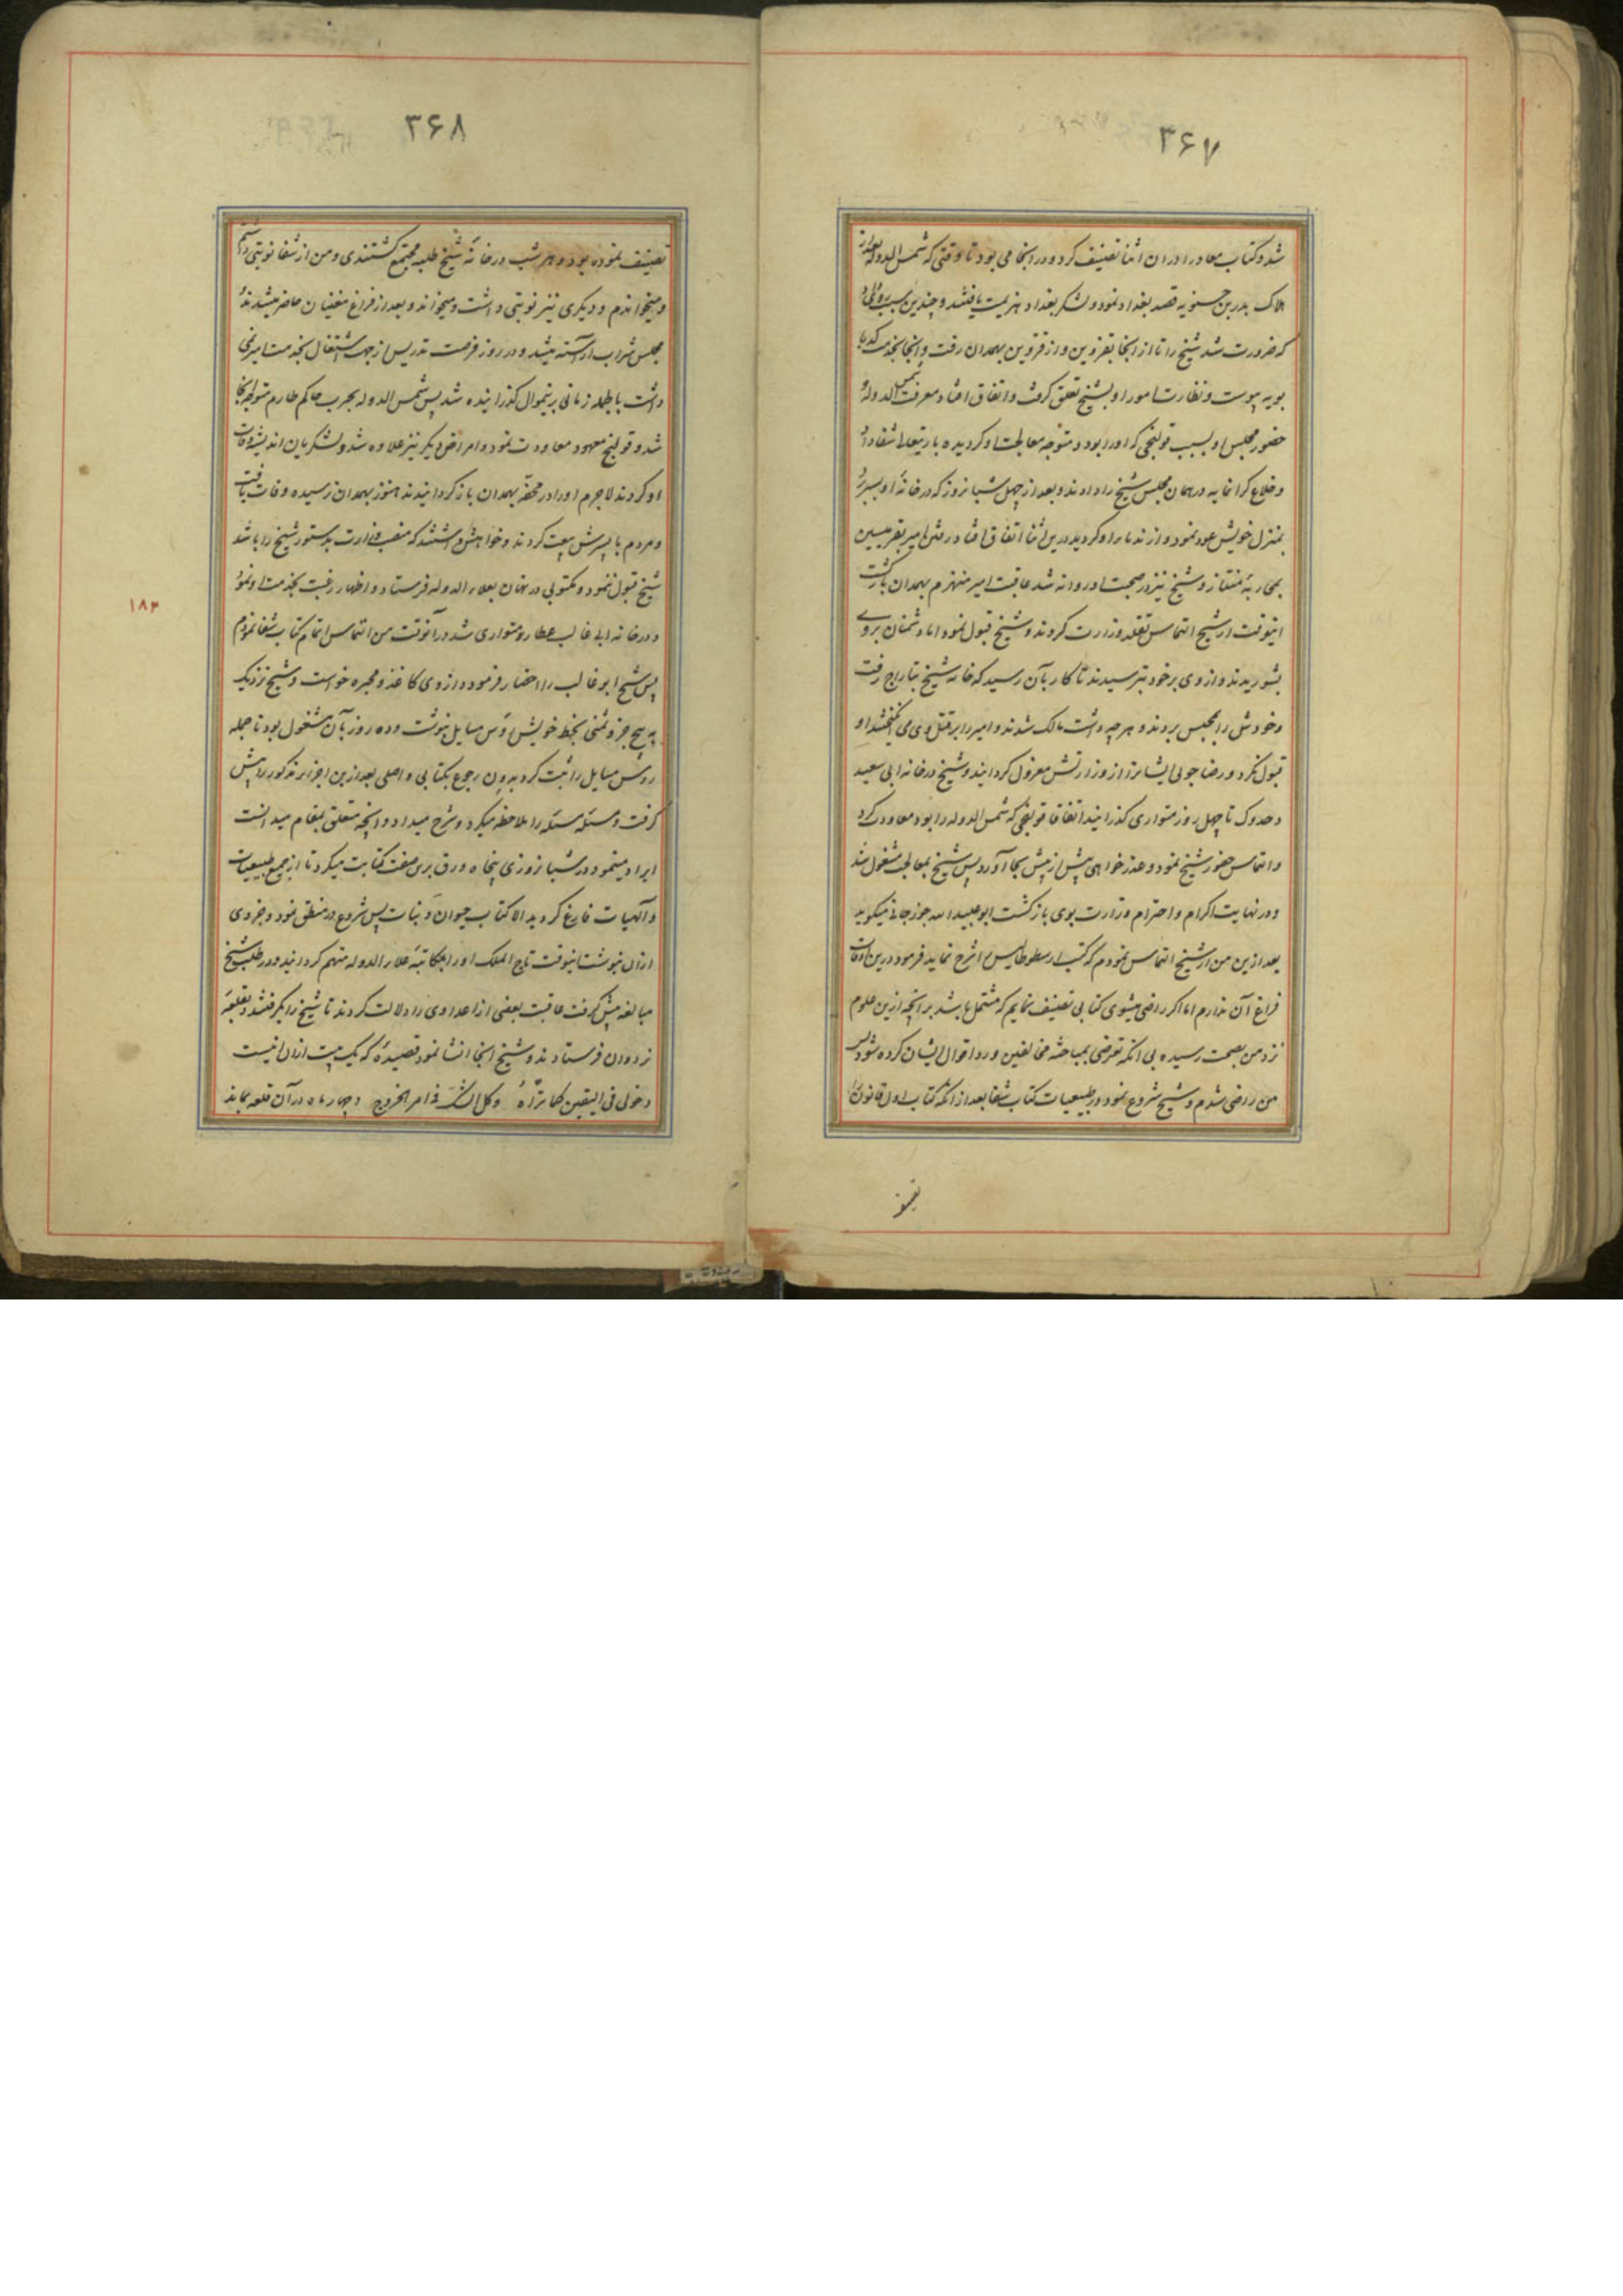 ۳۶۷
شد و کتاب معاد را در ان اثنا تصنیف کرد و در انجا می بود تا وقتی که شمس الدوله بعد از
هلاک بدر بن حسنویه قصد بغداد نمود و لشکر بغداد هزیمت یافتند و چندین سبب
که ضرورت شد شیخ را تا از انجا بقزوین و از قزوین بهمدان رفت و انجا بخدمت کدبا
بویه پیوست و نظارت امور او بشیخ تعلق گرفت و اتفاق افتاد معرفت شمس الدوله و
حضور مجلس او بسبب قولنجی که او را بود و متوجه معالجت او گردیده باریتعالی شفا داد
و خلاع گرانمایه در همان مجلس شیخ را دادند و بعد از چهل شبانروز که در خانه او بسر برد
بمنزل خویش عود نمود و از ندماء او گردید درین اثنا اتفاق افتاد رفتن امیر بقرمیسین
بمحاربه عناز و شیخ نیز در صحبت او روانه شد عاقبت امیر منهزم بهمدان بازگشت
اینوقت از شیخ التماس تقلد وزارت کردند و شیخ قبول نمود اما دشمنان بروی
بشوریدند و از وی بر خود بترسیدند تا کار بآن رسید که خانه شیخ بتاراج رفت
و خودش را بمحبس بردند و هر چه داشت مالک شدند و امیر را بر قتل وی می
قبول نکرد و رضا جوئی ایشانرا از وزارتش معزول گردانید و شیخ در خانه ابی سعید
دخدوک تا چهل روز متواری گذرانید اتفاقا قولنجی که شمس الدوله را بود معاودت کرد
و التماس حضور شیخ نمود و عذر خواهی بیش از پیش بجا آورد پس شیخ بمعالجت مشغول شد
و در نهایت اکرام و احترام وزارت بوی بازگشت ابو عبید الله جوزجانی میگوید
بعد ازین من از شیخ التماس نمودم که کتب ارسطوطالیس را شرح نماید فرمود درین اوقات
فراغ آن ندارم اما اگر راضی میشوی کتابی تصنیف نمایم که مشتمل باشد بر انچه ازین علوم
نزد من بصحت رسیده بی انکه تعرضی بمباحثه مخالفین و رد اقوال ایشان کرده شود پس
من راضی شدم و شیخ شروع نمود در طبیعیات کتاب شفا بعد از انکه کتاب اول قانون را
تصنیف
۳۶۸
تصنیف نموده بود و هر شب در خانه شیخ طلبه مجتمع گشتندی و من از شفا نوبتی داشتم
و میخواندم و دیگری نیز نوبتی داشت و میخواند و بعد از فراغ مغنیان حاضر میشدند و
مجلس شراب آراسته میشد و در روز فرصت تدریس از جهت اشتغال بخدمت امیر نمی
داشت بالجمله زمانی برینموال گذرانیده شد پس شمس الدوله بحرب حاکم طارم متوجه انجا
شد و قولنج معهود معاودت نمود و امراض دیگر نیز علاوه شد و لشکریان اندیشه وفات
او کردند لاجرم او را در محفه بهمدان باز گردانیدند هنوز بهمدان نرسیده وفات یافت
و مردم با پسرش بیعت کردند و خواهش داشتند که منصب وزارت بدستور شیخ را باشد
شیخ قبول ننمود و مکتوبی در نهان بعلاء الدوله فرستاد و اظهار رغبت بخدمت او نمود
و در خانه ابی غالب عطار متواری شد در آنوقت من التماس اتمام کتاب شفا نمودم
پس شیخ ابو غالب را احضار فرمود و از وی کاغذ و محبره خواست و شیخ نزدیک
به پنج جزو ثمنی بخط خویش رؤس مسایل بنوشت و ده روز بآن مشغول بود تا جمله
رؤس مسایل را ثبت کرد بدون رجوع بکتابی و اصلی بعد ازین اجزاء مذکور را پیش
گرفت و مسئله مسئله را ملاحظه میکرد و شرح میداد و انچه متعلق بمقام میدانست
ایراد مینمود و در شبانروزی پنجاه ورق برین صفت کتابت میکرد تا از جمیع طبیعیات
و آلهیات فارغ گردید الا کتاب حیوان و نبات پس شروع در منطق نمود و جزوی
ازان بنوشت اینوقت تاج الملک او را بمکاتبه علاء الدوله متهم گردانید و در طلب شیخ
مبالغه پیش گرفت عاقبت بعضی از اعدا وی را دلالت کردند تا شیخ را بگرفتند و بقلعه
نردوان فرستادند و شیخ انجا انشا نمود قصیده که یک بیت ازان اینست
دخولی فی الیقین کما تراه و کل الشک فی امر الخروج و چهار ماه در آن قلعه بماند
۱۸۳